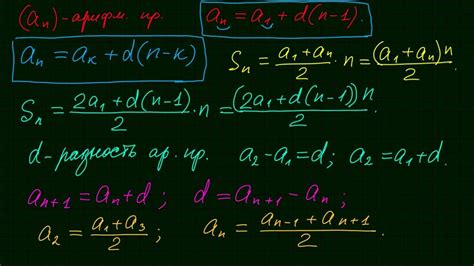 (aₙ)-арифм. пр. aₙ = a₁ + d(n-1).
aₙ = aₖ + d(n-к) Sₙ = \frac{a₁+aₙ}{2} · n = \frac{(a₁+aₙ)n}{2}.
Sₙ = \frac{2a₁+d(n-1)}{2} · n = \frac{(2a₁+d(n-1))n}{2}
d-разность ар. пр. a₂-a₁=d; a₂=a₁+d.
aₙ₊₁=aₙ+d; d=aₙ₊₁-aₙ;
a₂ = \frac{a₁+a₃}{2}; aₙ = \frac{aₙ₋₁+aₙ₊₁}{2}.